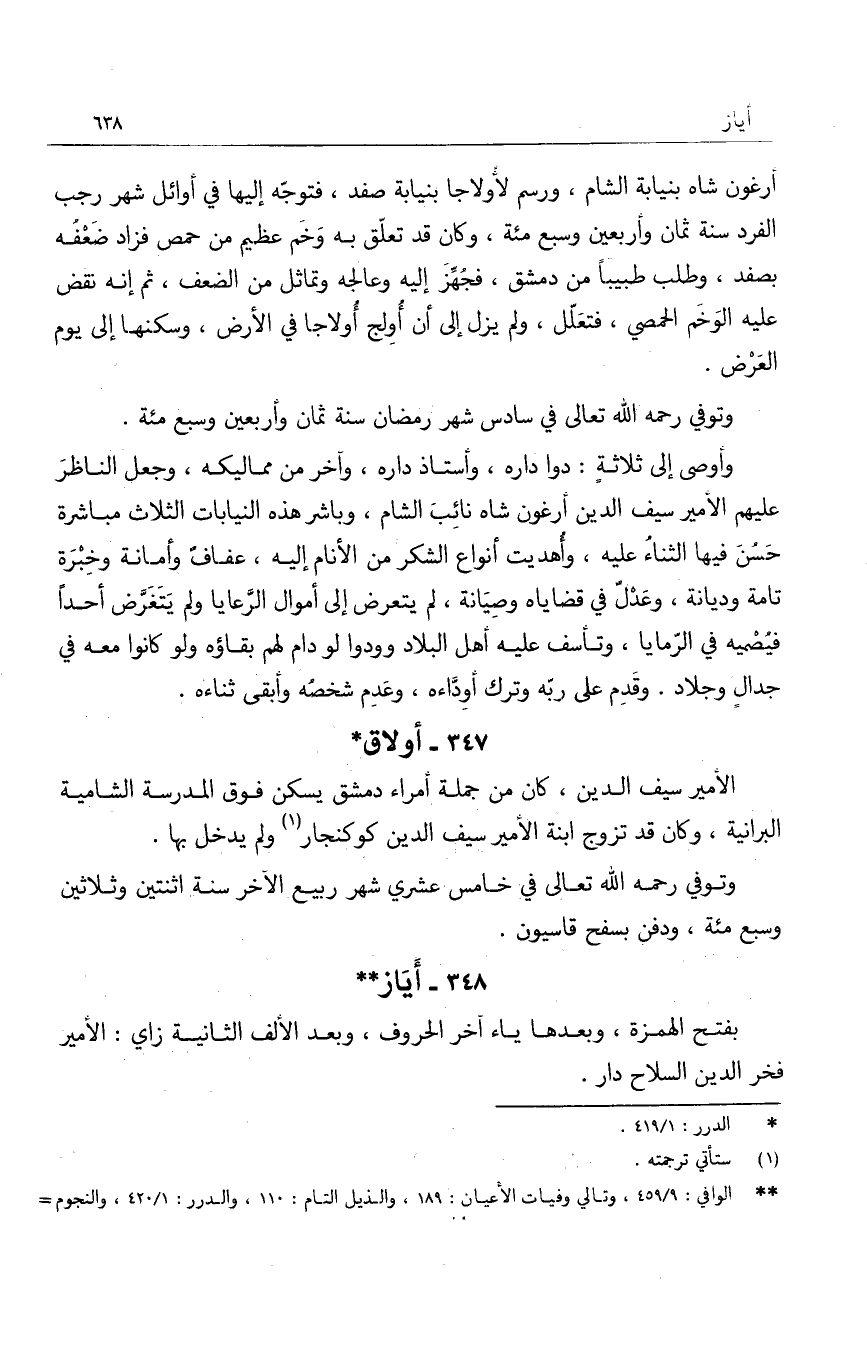 أياز ٦٣٨
أرغون شاه بنيابة الشام ، ورسم لأولاجا بنيابة صفد ، فتوجّه إليها في أوائل شهر رجب
الفرد سنة ثمان وأربعين وسبع مئة ، وكان قد تعلّق بـه وَخَم عظيم من حمص فزاد ضَعْفُـه
بصفد ، وطلب طبيباً من دمشق ، فجُهِّزَ إليه وعالجه وتماثل من الضعف ، ثم إنـه نقض
عليه الوَخَم الحمصي ، فتعَلّل ، ولم يزل إلى أن أُولج أُولاجا في الأرض ، وسكنهـا إلى يوم
العَرْض .
وتوفي رحمه الله تعالى في سادس شهر رمضان سنة ثمان وأربعين وسبع مئة .
وأوصى إلى ثلاثـةٍ : دوا داره ، وأستـاذ داره ، وآخر من ممـاليكـه ، وجعل النـاظرَ
عليهم الأمير سيف الدين أرغون شاه نائبَ الشام ، وباشر هذه النيابات الثلاث مبـاشرة
حَسُنَ فيها الثناءُ عليه ، وأُهديت أنواع الشكر من الأنام إليـه ، عفـافٌ وأمـانـة وخِبْرَة
تامة وديانة ، وعَدْلٌ في قضاياه وصِيَانة ، لم يتعرض إلى أموال الرَّعايا ولم يَتَغَرَّض أحـداً
فيُصْميه في الرّمايا ، وتـأسف عليـه أهل البلاد وودوا لو دام لهم بقـاؤه ولو كانوا معـه في
جدالٍ وجلاد . وقَدِم على ربّه وترك أودَّاءه ، وعَدِم شخصُه وأبقى ثناءه .
٣٤٧ ـ أولاق*
الأمير سيف الـدين ، كان من جملـة أمراء دمشق يسكن فـوق المـدرسـة الشـاميـة
البرانية ، وكان قد تزوج ابنة الأمير سيف الدين كوكنجار(١) ولم يدخل بها .
وتـوفي رحمـه الله تعـالى في خـامس عشري شهر ربيـع الآخر سنـة اثنتين وثـلاثين
وسبع مئة ، ودفن بسفح قاسيون .
٣٤٨ ـ أَيَاز**
بفتـح الهمـزة ، وبعـدهـا يـاء آخر الحروف ، وبعـد الألف الثـانيـة زاي : الأمير
فخر الدين السلاح دار .
* الدرر : ٤١٩/١ .
(١) ستأتي ترجمته .
** الوافي : ٤٥٩/٩ ، وتـالي وفيـات الأعيـان : ١٨٩ ، والـذيل التـام : ١١٠ ، والـدرر : ٤٢٠/١ ، والنجوم =